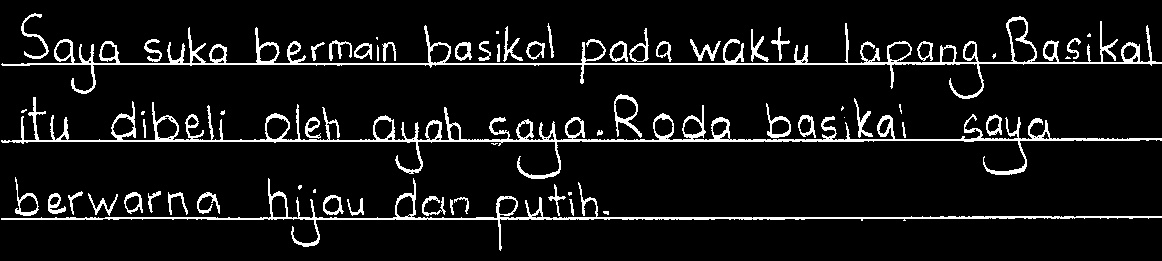 Saya suka bermain basikal pada waktu lapang. Basikal
itu dibeli oleh ayah saya. Roda basikal saya
berwarna hijau dan putih.